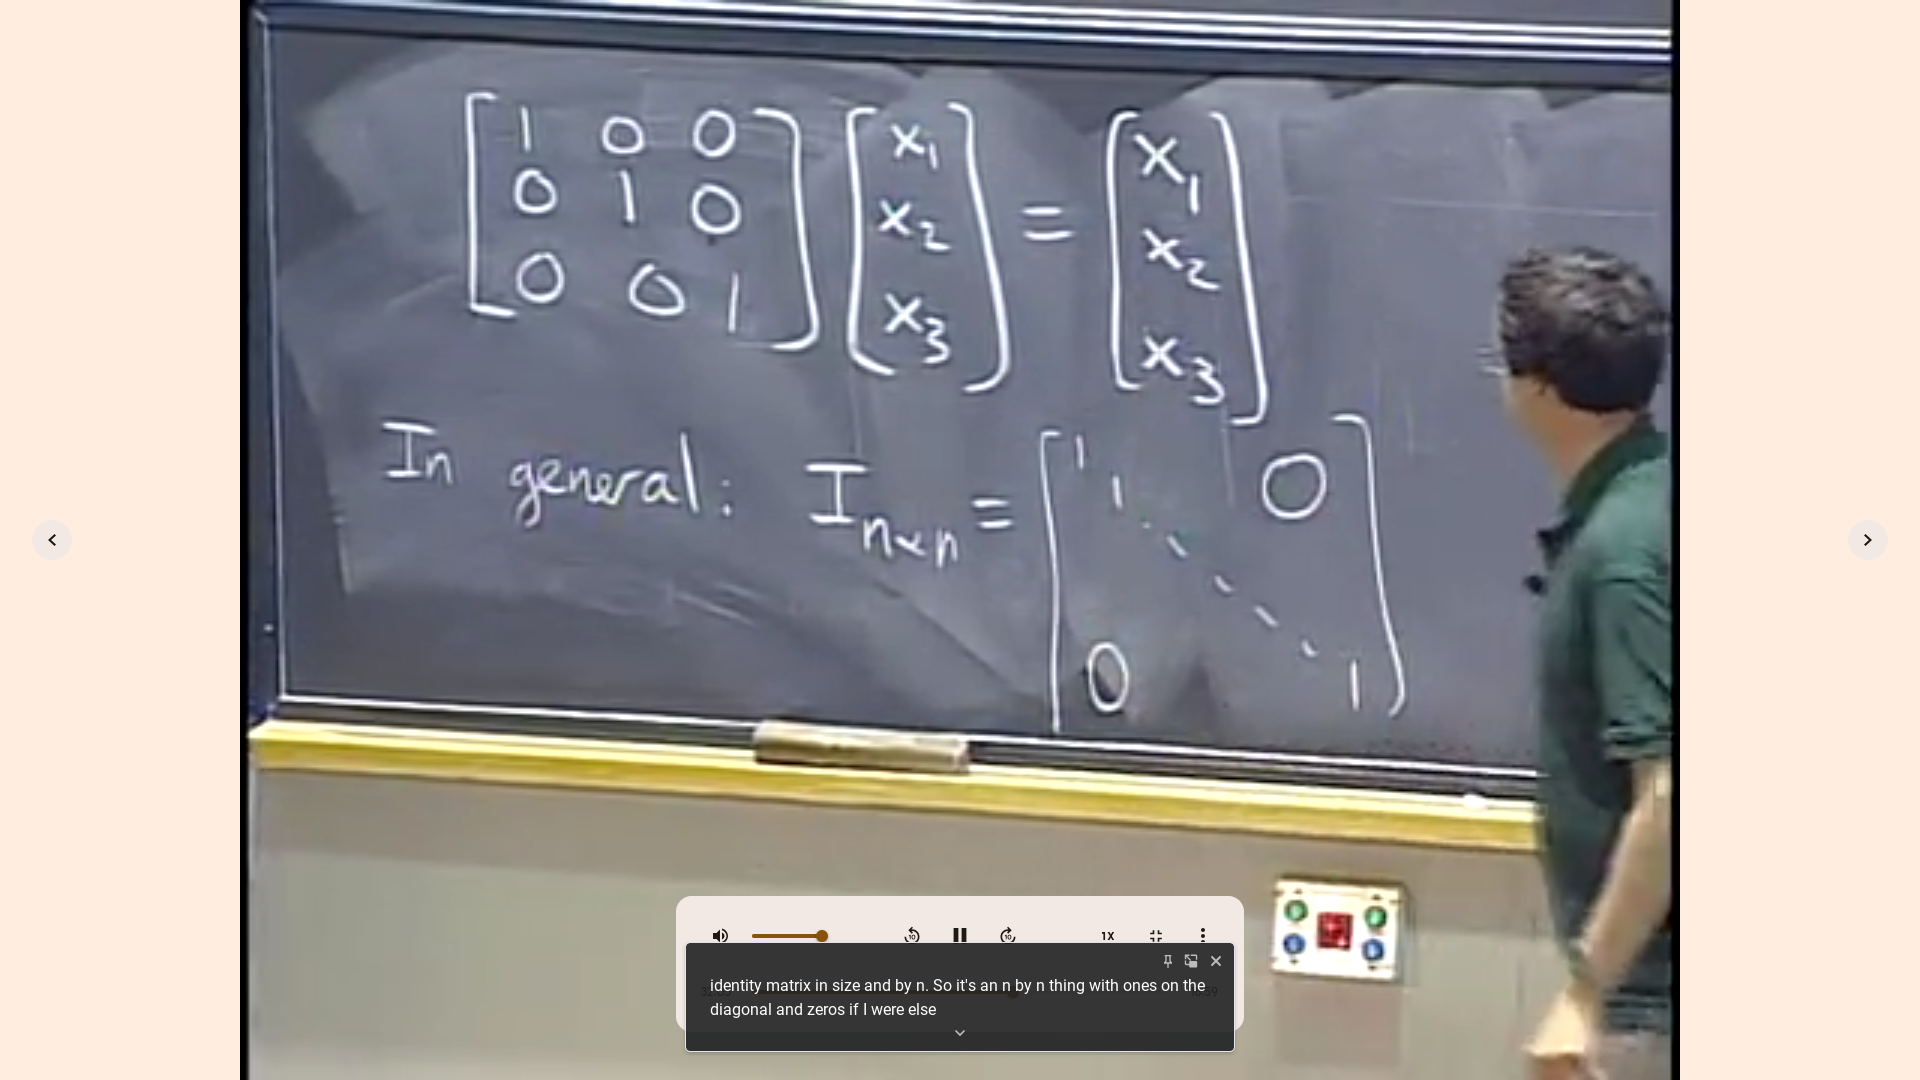 [1 0 0] [x₁] = [x₁]
[0 1 0] [x₂]   [x₂]
[0 0 1] [x₃]   [x₃]
In general: Iₙₓₙ = [1 1 ⋱ 1]
0
0
10
10
1X
identity matrix in size and by n. So it's an n by n thing with ones on the
diagonal and zeros if I were else